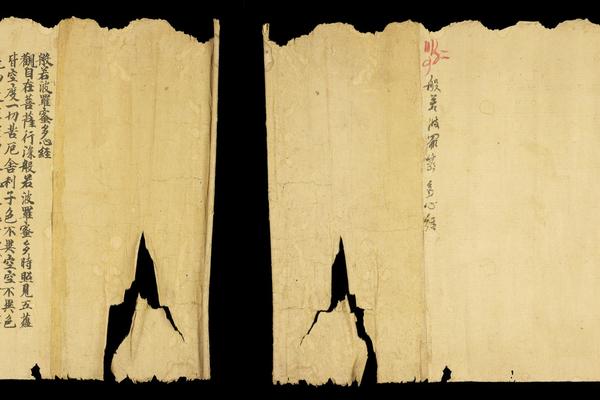 般若波羅蜜多心經
般若波羅蜜多心經
觀自在菩薩行深般若波羅蜜多時照見五蘊
皆空度一切苦厄舍利子色不異空空不異色